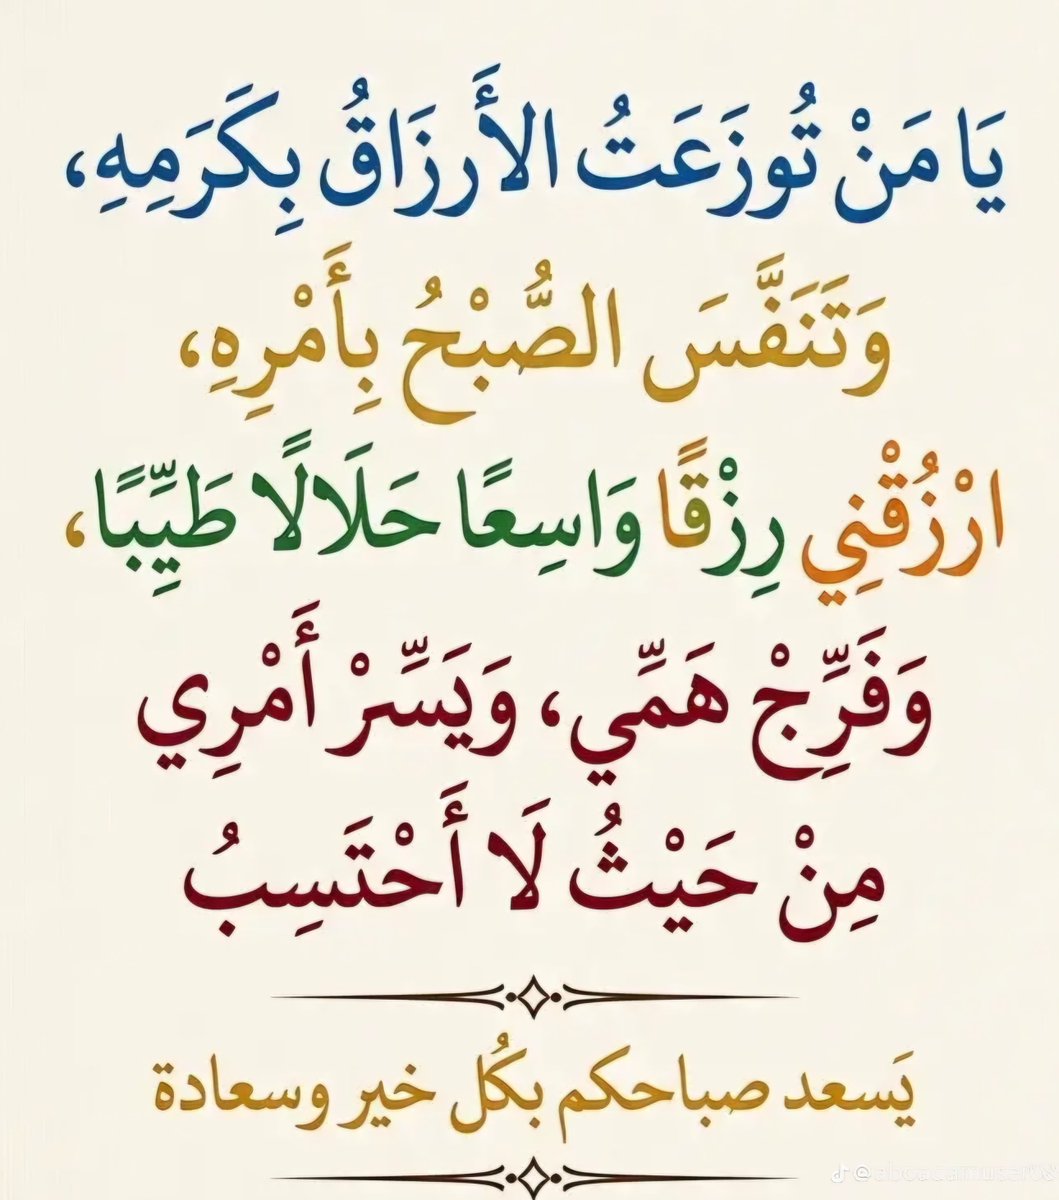 يَا مَنْ تُوزَعَتُ الأَرزَاقُ بِكَرَمِهِ،
وَتَنَفَّسَ الصُّبْحُ بِأَمْرِهِ،
ارْزُقْنِي رِزْقًا وَاسِعًا حَلَالًا طَيِّبًا،
وَفَرِّجْ هَمِّي، وَيَسِّرْ أَمْرِي
مِنْ حَيْثُ لَا أَحْتَسِبُ
يَسعد صباحكم بكُل خير وسعادة